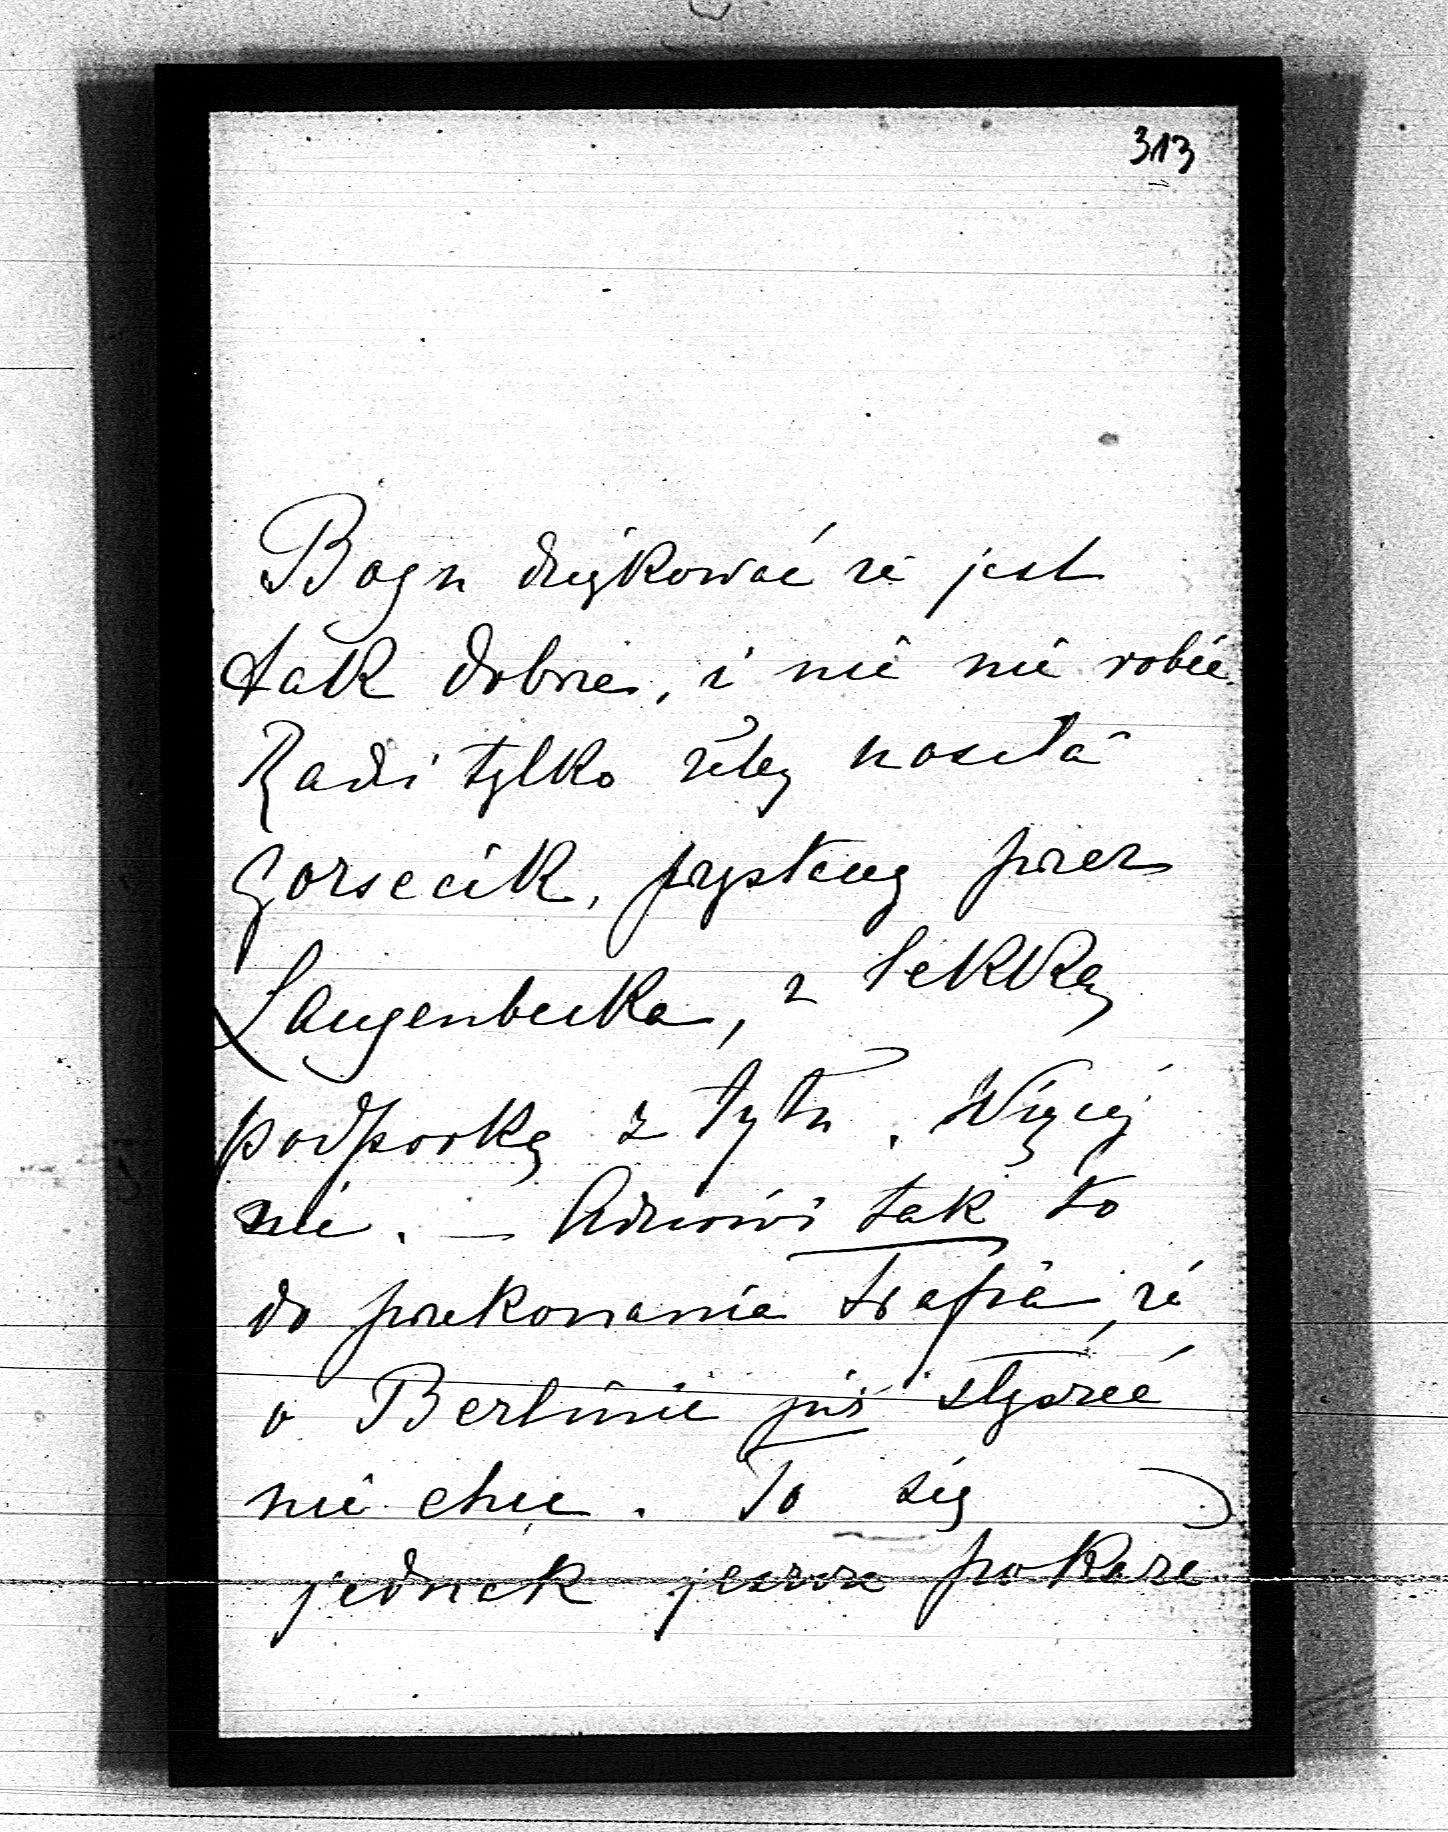 313
Bogu dziękować że jest
tak dobrze, i nic nie robić.
Radzi tylko żeby nosiła
gorsecik, przysłany przez
Langenbecka, z lekką
podporką z tyłu. Więcej
nic. — tak to
do przekonania trafia, że
o Berlinie już słyszeć
nie chce. To się
jednak jeszcze pokaże